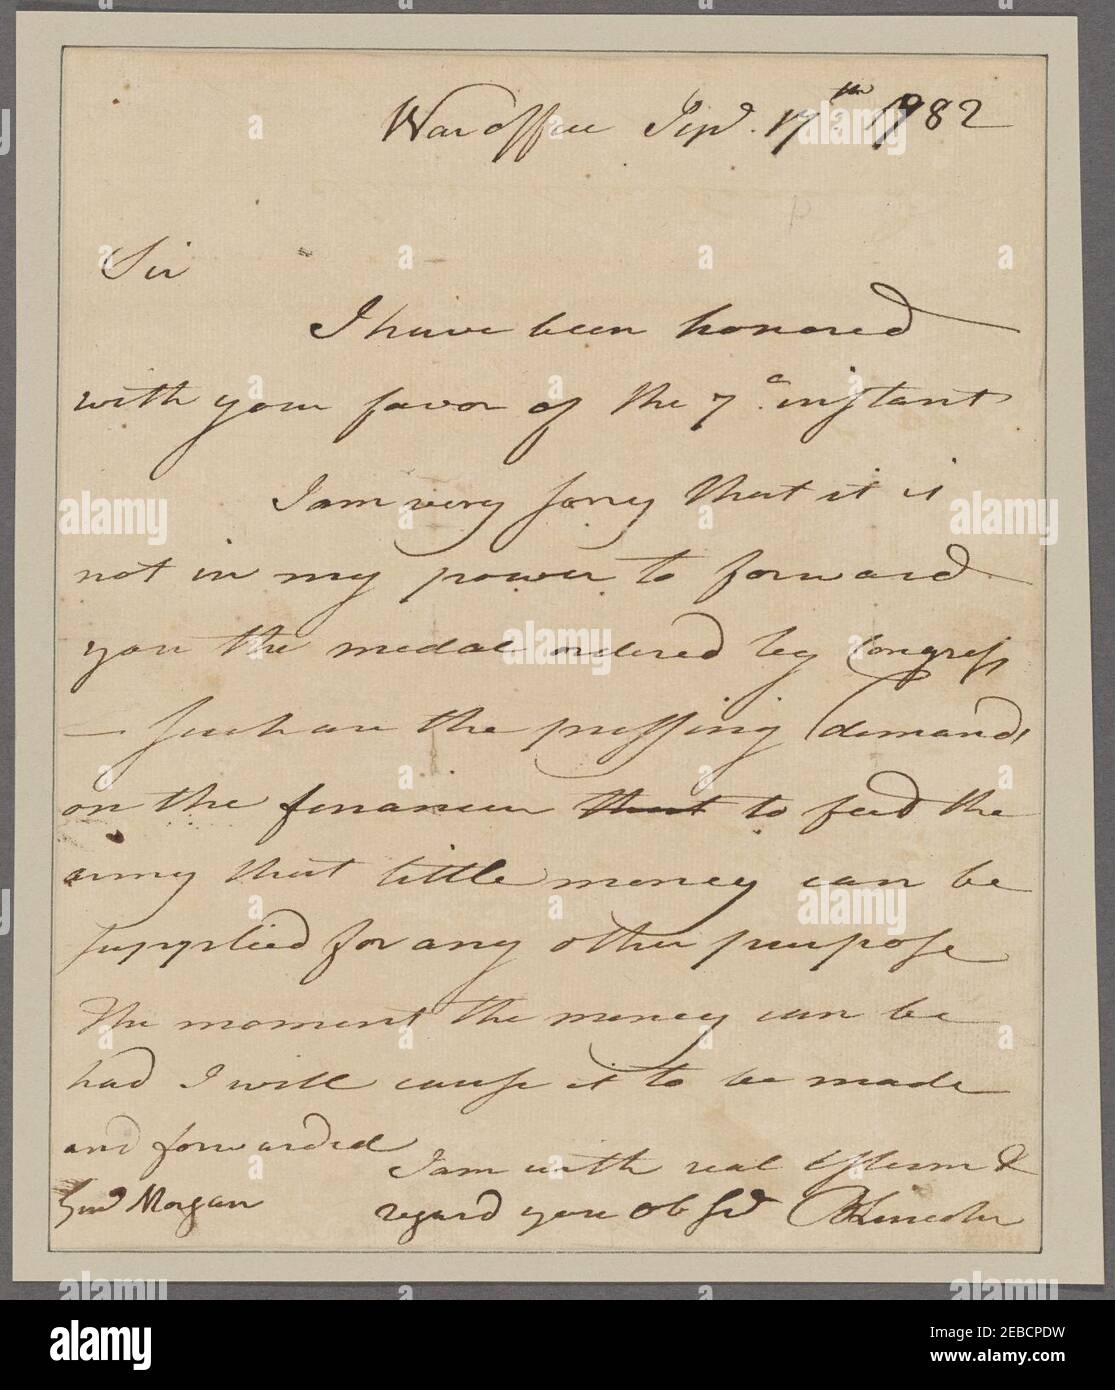 War office Sepd. 17th. 1782
Sir
I have been honored
with your favor of the 7th. instant
I am very sorry that it is
not in my power to forward
you the medal ordered by Congress
— Such are the pressing demands
on the financier that to feed the
army that little money can be
supplied for any other purpose
the moment the money can be
had I will cause it to be made
and forwarded
I am with real Esteem &
regard your Ob Sr. BLincoln
Genl Morgan
alamy
Image ID: 2EBCPDW
www.alamy.com